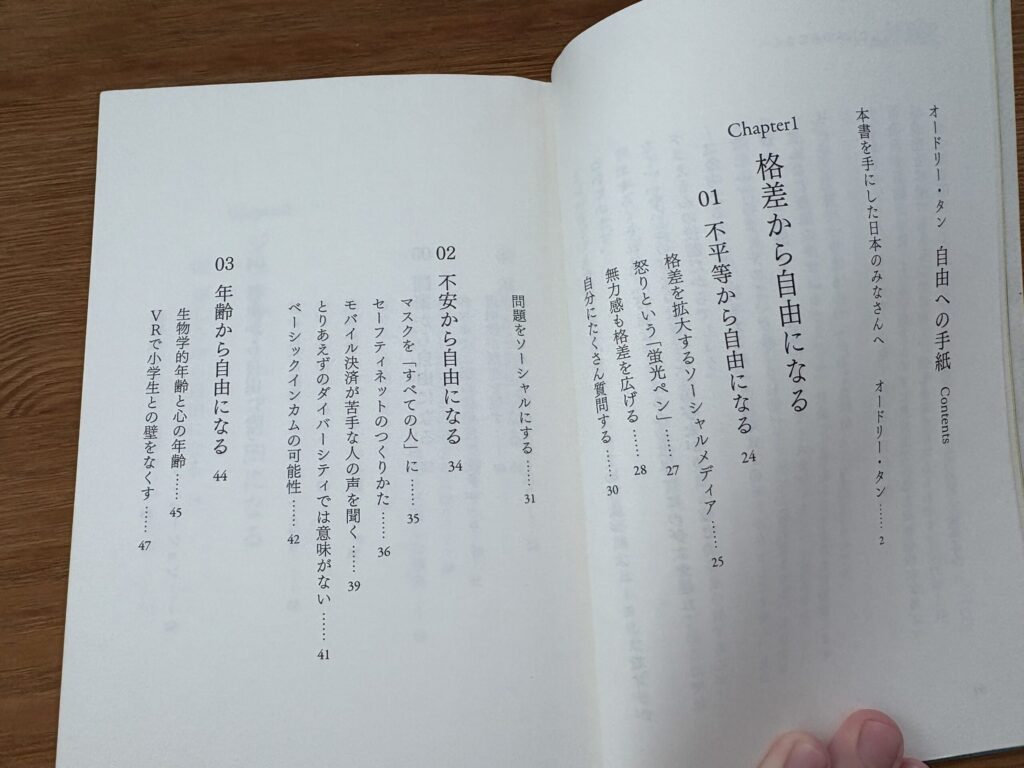 オードリー・タン 自由への手紙 Contents
本書を手にした日本のみなさんへ オードリー・タン ……2
Chapter1
格差から自由になる
01 不平等から自由になる 24
格差を拡大するソーシャルメディア ……25
怒りという「蛍光ペン」……27
無力感も格差を広げる ……28
自分にたくさん質問する ……30
問題をソーシャルにする ……31
02 不安から自由になる 34
マスクを「すべての人」に ……35
セーフティネットのつくりかた ……36
モバイル決済が苦手な人の声を聞く ……39
とりあえずのダイバーシティでは意味がない ……41
ベーシックインカムの可能性 ……42
03 年齢から自由になる 44
生物学的年齢と心の年齢 ……45
VRで小学生との壁をなくす ……47